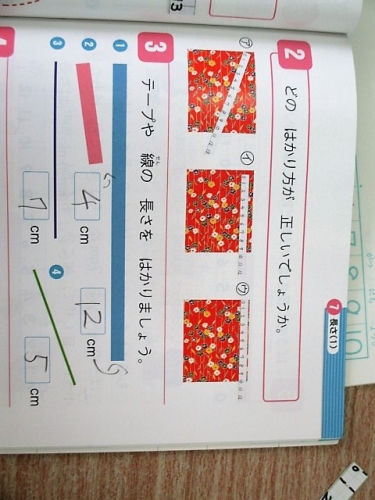 7 長さ(1)
2 どの はかり方が 正しいでしょうか。
ア
イ
ウ
3 テープや 線の 長さを はかりましょう。
せん
1
12 cm
2
4 cm
3
7 cm
4
5 cm
4